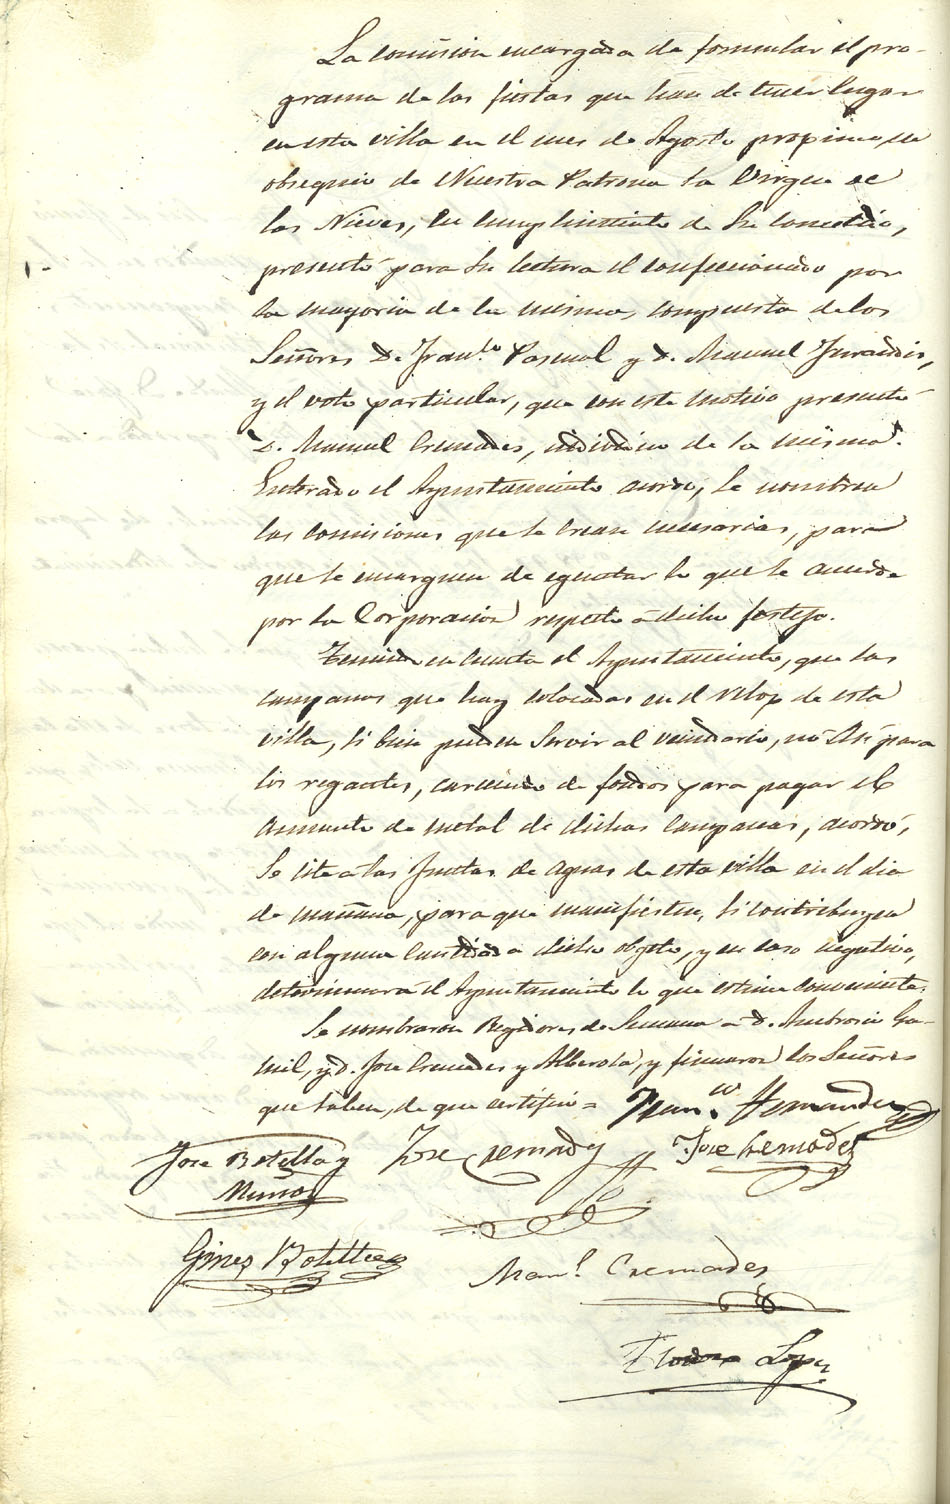 La comision encargada de formular el pro-
grama de las fiestas que han de tener lugar
en esta villa en el mes de Agosto proximo, en
obsequio de Nuestra Patrona la Virgen de
las Nieves, en cumplimiento de su cometido,
presentó para su lectura el confeccionado por
la mayoria de la misma, compuesta de los
Señores D. Fran.co Pascual y D. Manuel
y el voto particular, que con este motivo presentó
D. Manuel Cremades, individuo de la misma.
Enterado el Ayuntamiento acordó, se nombren
las comisiones que se crean necesarias, para
que se encarguen de egecutar lo que se acuerde
por la Corporacion respecto á dicho festejo.
Teniendo en cuenta el Ayuntamiento, que las
campanas que hay colocadas en el relox de esta
villa, si bien pueden servir al vecindario, no así para
los regantes, careciendo de fondos para pagar el
aumento de metal de dichas campanas, acordó,
se cite a las Juntas de aguas de esta villa en el dia
de mañana, para que manifiesten, si contribuyen
con alguna cantidad a dicho objeto, y en caso negativo,
determinará el Ayuntamiento lo que estime conveniente.
Se nombraron Regidores de Semana a D. Ambrosio Ga-
mil, y D. Jose Cremades y Alberola, y firmaron los Señores
que saben, de que certifico =
Fran.co Hernandez
Jose Botella y
Muños
Jose Cremades
Jose Cremades
Gines Botella
Man.l Cremades
Lopez